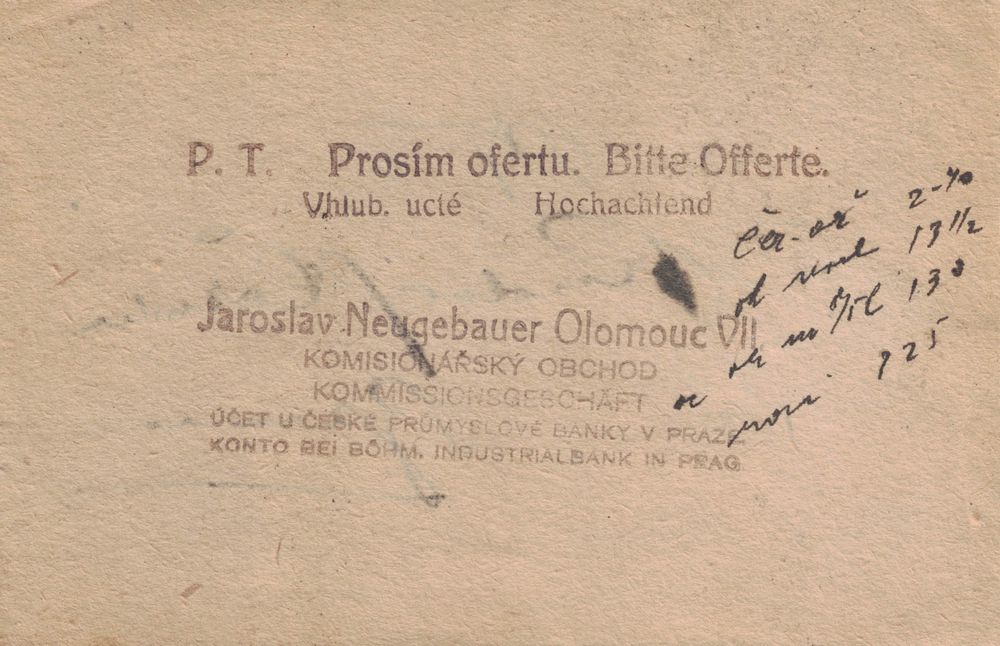 P. T. Prosím ofertu. Bitte Offerte.
Vhlub. uctě Hochachtend
Jaroslav Neugebauer Olomouc VII
KOMISIONÁŘSKÝ OBCHOD
KOMMISSIONSGESCHÄFT
ÚČET U ČESKÉ PRŮMYSLOVÉ BANKY V PRAZE
KONTO BEI BÖHM. INDUSTRIALBANK IN PRAG
2-70
13 1/2
130
925